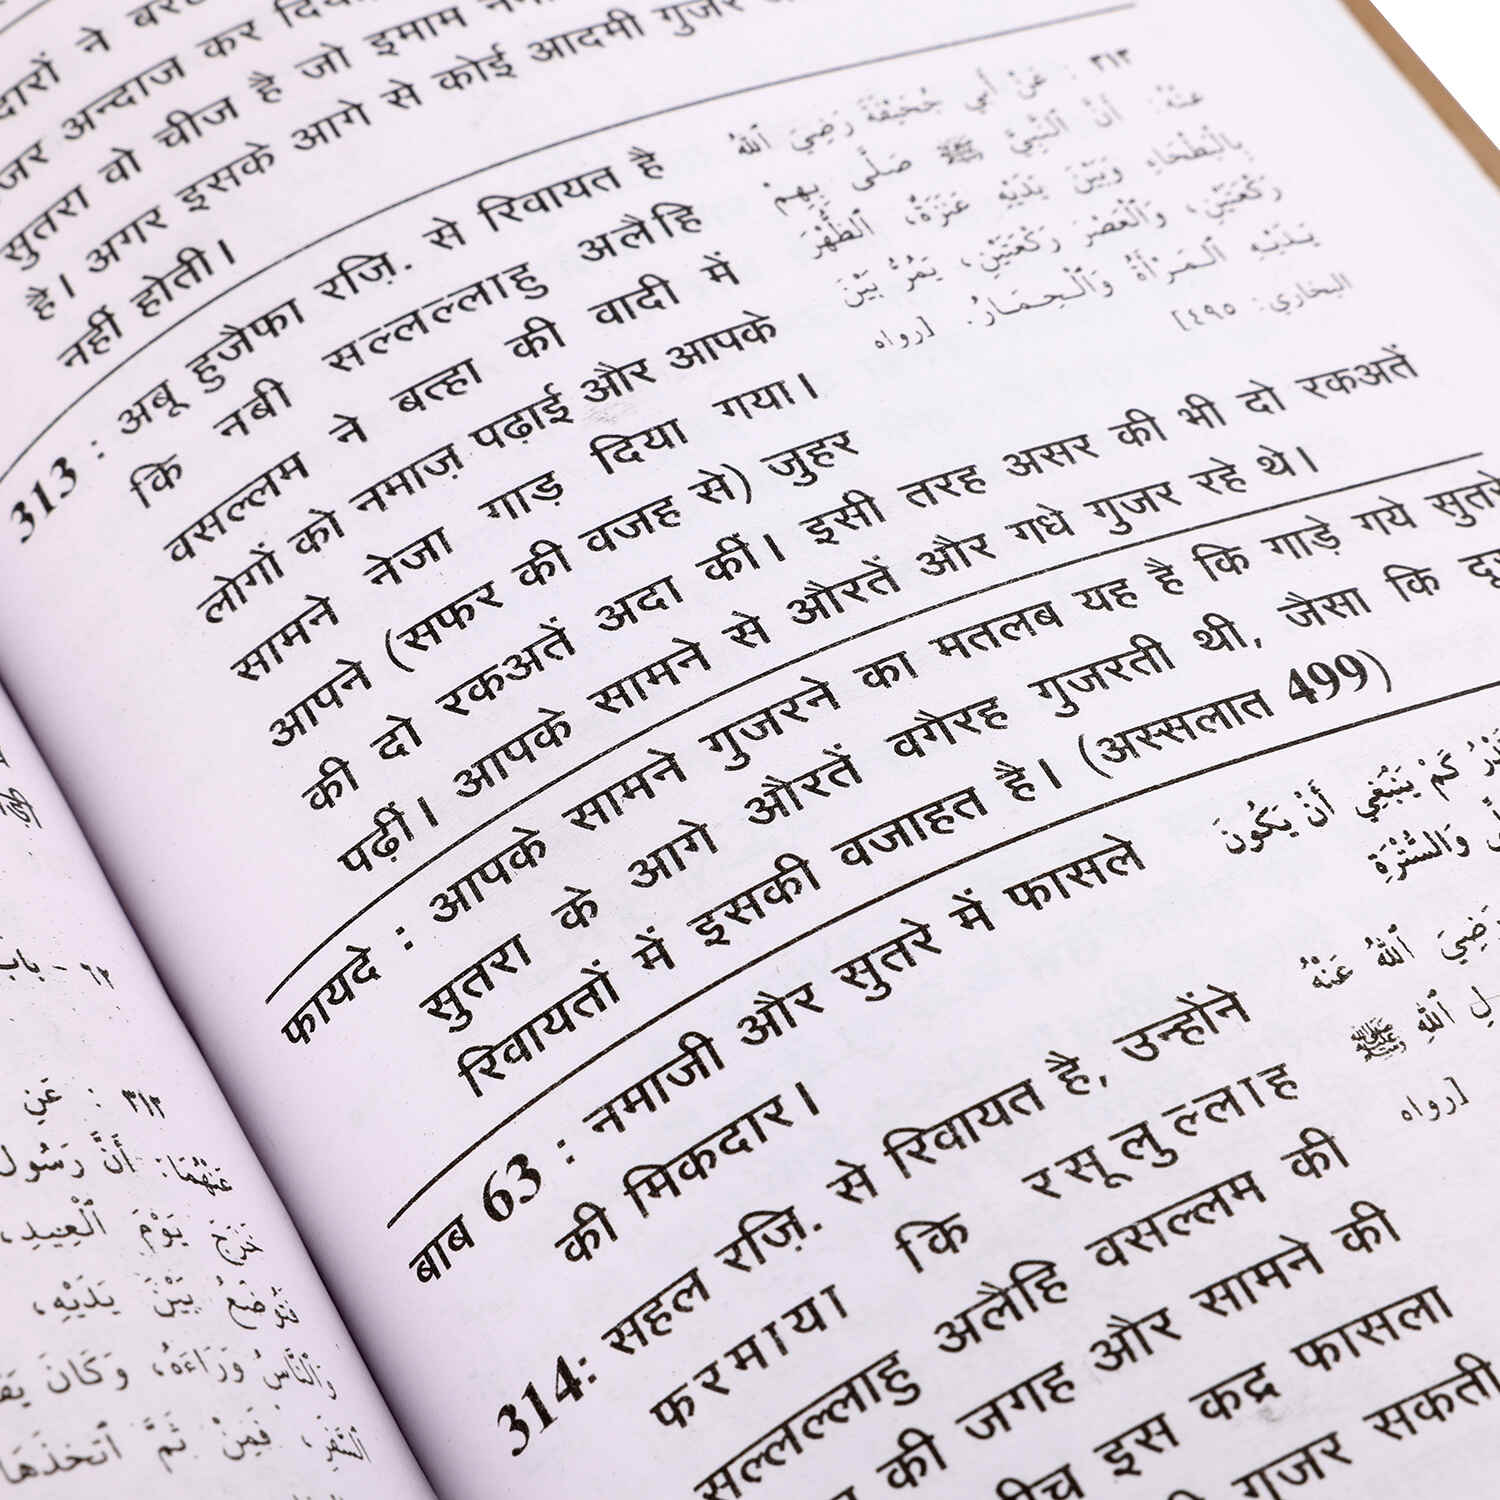 दारों ने
अन्दाज कर
सुतरा वो चीज है जो इमाम
है। अगर इसके आगे से कोई आदमी गुजर
नहीं होती।
313 : अबू हुजैफा रज़ि. से रिवायत है
कि नबी सल्लल्लाहु अलैहि
वसल्लम ने बत्हा की वादी में
लोगों को नमाज़ पढ़ाई और आपके
सामने नेजा गाड़ दिया गया।
आपने (सफर की वजह से) जुहर
की दो रकअतें अदा कीं। इसी तरह असर की भी दो रकअतें
पढ़ीं। आपके सामने से औरतें और गधे गुजर रहे थे।
٣١٣ : عَنْ أَبِي جُحَيْفَةَ رَضِيَ ٱللهُ
عَنْهُ: أَنَّ ٱلنَّبِيَّ ﷺ صَلَّى بِهِمْ
بِالْبَطْحَاءِ وَبَيْنَ يَدَيْهِ عَنَزَةٌ، ٱلظُّهْرَ
رَكْعَتَيْنِ، وَٱلْعَصْرَ رَكْعَتَيْنِ، يَمُرُّ بَيْنَ
يَدَيْهِ ٱلْمَرْأَةُ وَٱلْحِمَارُ. [رواه
البخاري: ٤٩٥]
फायदे : आपके सामने गुजरने का मतलब यह है कि गाड़े गये सुतरे
सुतरा के आगे औरतें वगैरह गुजरती थी, जैसा कि
रिवायतों में इसकी वजाहत है। (अस्सलात 499)
बाब 63 : नमाजी और सुतरे में फासले
की मिकदार।
كَمْ يَنْبَغِي أَنْ يَكُونَ
وَالسُّتْرَةِ
314: सहल रज़ि. से रिवायत है, उन्होंने
फरमाया कि रसूलुल्लाह
सल्लल्लाहु अलैहि वसल्लम की
की जगह और सामने की
इस कद्र फासला
गुजर सकती
رَضِيَ ٱللهُ عَنْهُ
ٱللهِ ﷺ
[رواه
٦٢ - باب
٣١٢ : عَنِ
عَنْهُمَا: أَنَّ رَسُولَ
خَرَجَ يَوْمَ ٱلْعِيدِ،
فَتُوضَعُ بَيْنَ يَدَيْهِ،
وَٱلنَّاسُ وَرَاءَهُ، وَكَانَ
السَّفَرِ، فَمِنْ ثَمَّ ٱتَّخَذَهَا